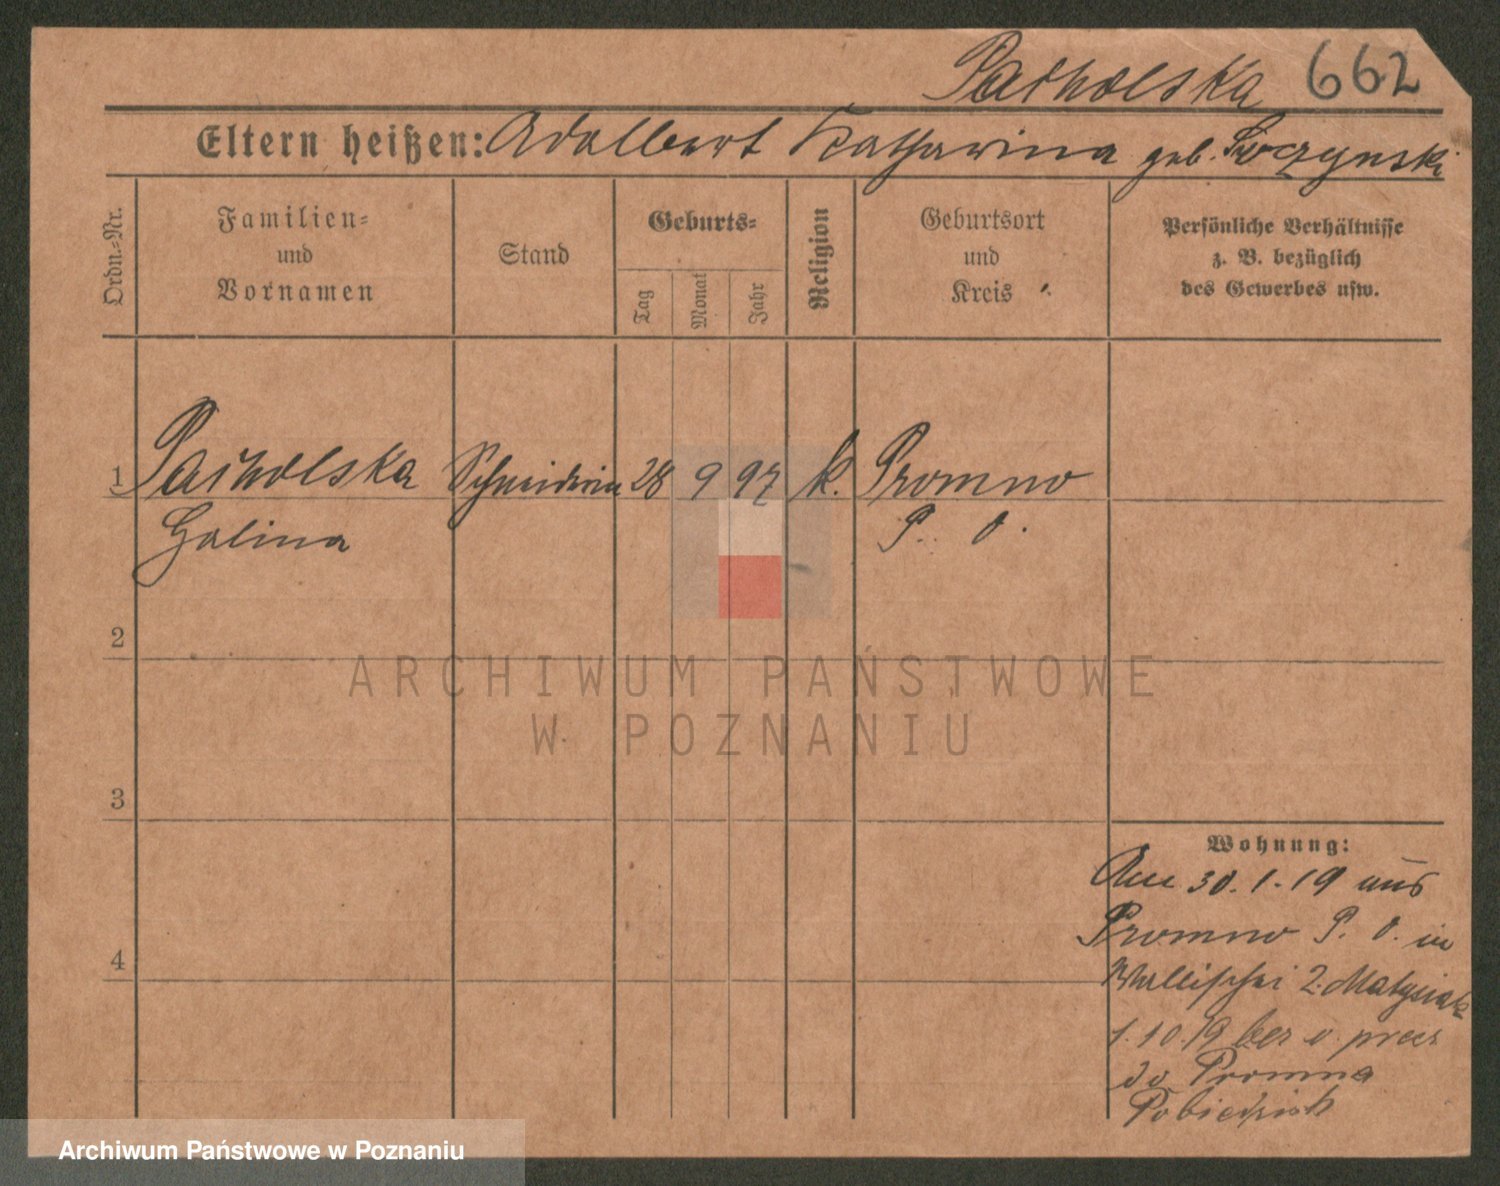 Pacholska 662
Eltern heißen: Adalbert Katharina geb.
Ordn.-Nr.
Familien-
und
Vornamen
Stand
Geburts-
Tag
Monat
Jahr
Religion
Geburtsort
und
Kreis
Persönliche Verhältnisse
z. B. bezüglich
des Gewerbes usw.
1 Pacholska Schneiderin 28 9 97 k. Promno
Halina P. O.
2
ARCHIWUM PAŃSTWOWE
W POZNANIU
3
Wohnung:
Am 30.1.19 aus
Promno P. O. in
4
Wallischei 2. Matysiak
1.10.19 bez o. przez
do Promna
Pobiedzisk
Archiwum Państwowe w Poznaniu